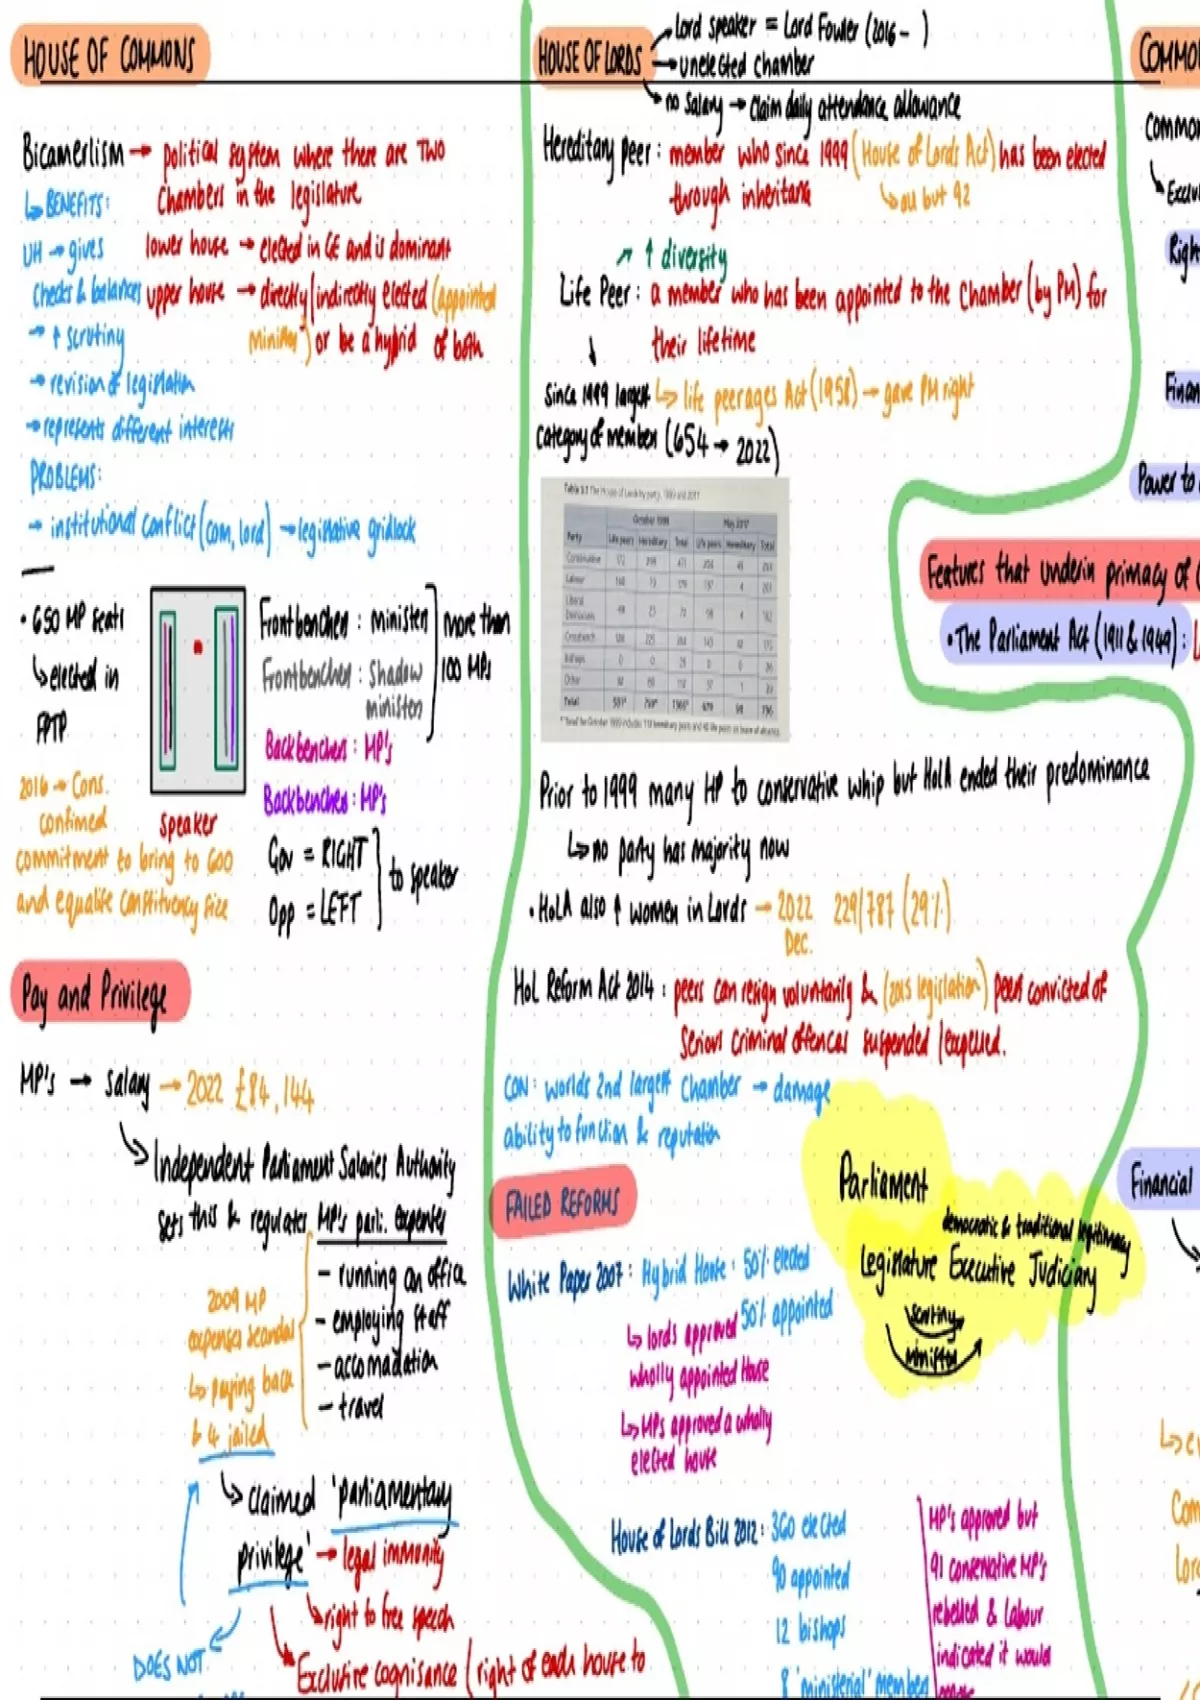 HOUSE OF COMMONS
Bicamerlism → political system where there are TWO
chambers in the legislature
↳ BENEFITS:
UH → gives
checks & balances
→ ↑ scrutiny
→ revision of legislation
→ represents different interests
lower house → elected in GE and is dominant
upper house → directly/indirectly elected (appointed
minister) or be a hybrid of both
PROBLEMS:
→ institutional conflict (com, lord) → legislative gridlock
• 650 MP seats
↳ elected in
FPTP
2016 → Cons.
confirmed
commitment to bring to 600
and equalise constituency size
speaker
Frontbenchers : ministers
Frontbenchers : shadow
ministers
more than
100 MPs
Backbenchers : MP's
Backbenches : MP's
Gov = RIGHT
Opp = LEFT
to speaker
Pay and Privilege
MP's → salary → 2022 £84,144
↳ Independent Parliament Salaries Authority
sets this & regulates MP's parli. expenses
– running an office
– employing staff
– accomadation
– travel
2009 MP
expenses scandal
↳ paying back
& 4 jailed
↳ claimed 'parliamentary
privilege' → legal immunity
↳ right to free speech
Exclusive cognisance (right of each house to
DOES NOT
HOUSE OF LORDS
Lord speaker = Lord Fowler (2016 - )
→ unelected chamber
no salary → claim daily attendance allowance
Hereditary peer : member who since 1999 (House of Lords Act) has been elected
through inheritance
↳ all but 92
↑ diversity
Life Peer : a member who has been appointed to the chamber (by PM) for
their lifetime
↳ life peerages Act (1958) → gave PM right
Since 1999 largest
category of members (654 → 2022)
Table 3.1 The House of Lords by party, 1999 and 2017
October 1999 May 2017
Party Life peers Hereditary Total Life peers Hereditary Total
Conservative
Labour
Liberal
Democrats
Crossbench
Bishops
Other
Total
Prior to 1999 many HP to conservative whip but HoLA ended their predominance
↳ no party has majority now
• HoLA also ↑ women in Lords → 2022 229/787 (29%)
Dec.
HoL Reform Act 2014 : peers can resign voluntarily & (2015 legislation) peers convicted of
serious criminal offences suspended/expelled.
CON: worlds 2nd largest chamber → damage
ability to function & reputation
FAILED REFORMS
White Paper 2007 : Hybrid House : 50% elected
50% appointed
↳ lords approved
wholly appointed House
↳ MPs approved a wholly
elected house
House of Lords Bill 2012 : 360 elected
90 appointed
12 bishops
8 'ministerial' members
MP's approved but
91 conservative MP's
rebelled & labour
indicated it would
Parliament
democratic & traditional legitimacy
Legislature Executive Judiciary
scrutiny
ministers
Features that underin primacy of
• The Parliament Act (1911 & 1949) :
Power to
Financial